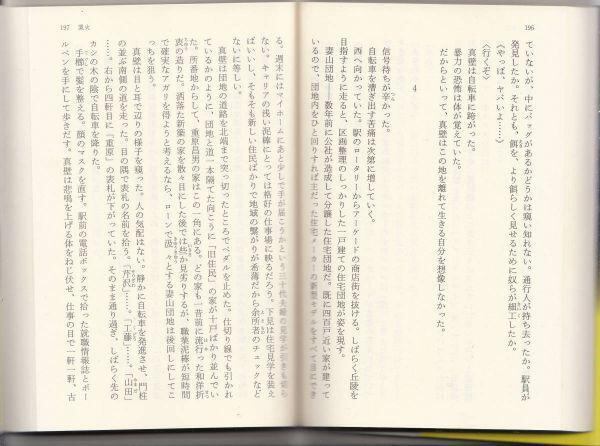 196
ていないが、中にバッグがあるかどうかは窺い知れない。通行人が持ち去ったか。駅員が
発見したか。それとも、餌を、より餌らしく見せるために奴らが細工したか。
〈やっぱ、ヤバいよ……〉
〈行くぞ〉
真壁は自転車に跨がった。
暴力の恐怖は体が覚えていた。
だからといって、真壁はこの地を離れて生きる自分を想像しなかった。
4
信号待ちが辛かった。
自転車を漕ぎ出す苦痛は次第に増していく。
西へ向かっていた。駅のロータリーからアーケードの商店街を抜ける。しばらく丘陵を
目指すように走ると、区画整理のしっかりした一戸建ての住宅団地が姿を現す。
妻山団地――数年前に公社が造成して分譲した住宅団地だ。既に四百戸近い家が建って
いるので、団地内をひと回りすれば主だった住宅メーカーの新型モデルをすべて目にでき
197 業火
る。週末にはマイホームにあと少しで手が届こうかという三十代夫婦の見学が引きも切ら
ない。キャリアの浅い泥棒にとっては格好の仕事場に映るだろう。下見は住宅見学を装え
ばいいし、そもそも新しい住民ばかりで地域の繋がりが希薄だから余所者のチェックなど
ないに等しい。
真壁は団地の道路を北端まで突っ切ったところでペダルを止めた。仕切り線でも引かれ
ているかのように、団地と道一本隔てた向こうに「旧住民」の家が十戸ばかり並んでい
た。所番地からして、重原昌男の家はこの一角にある。どの家も一昔前に流行った和洋折
衷の造りだ。洒落た新築の家を散々目にした後では些か見劣りするが、職業泥棒が短時間
で確実なアガリを得ようと考えるなら、ローンで汲々とする妻山団地は後回しにしてこ
っちを狙う。
真壁は目と耳で辺りの様子を窺った。人の気配はない。静かに自転車を発進させ、門柱
の並ぶ南側の道を走った。目の隅で表札の名前を拾う。「芹沢」……。「工藤」……。「山田」
……。右から四軒目に「重原」の表札が下がっていた。そのまま通り過ぎ、しばらく先の
カシの木の陰で自転車を降りた。
手櫛で髪を整える。顔のマスクを直す。駅前の電話ボックスで拾った就職情報誌とボー
ルペンを手にして歩きだす。真壁は悲鳴を上げる体をねじ伏せ、仕事の目で一軒一軒、古